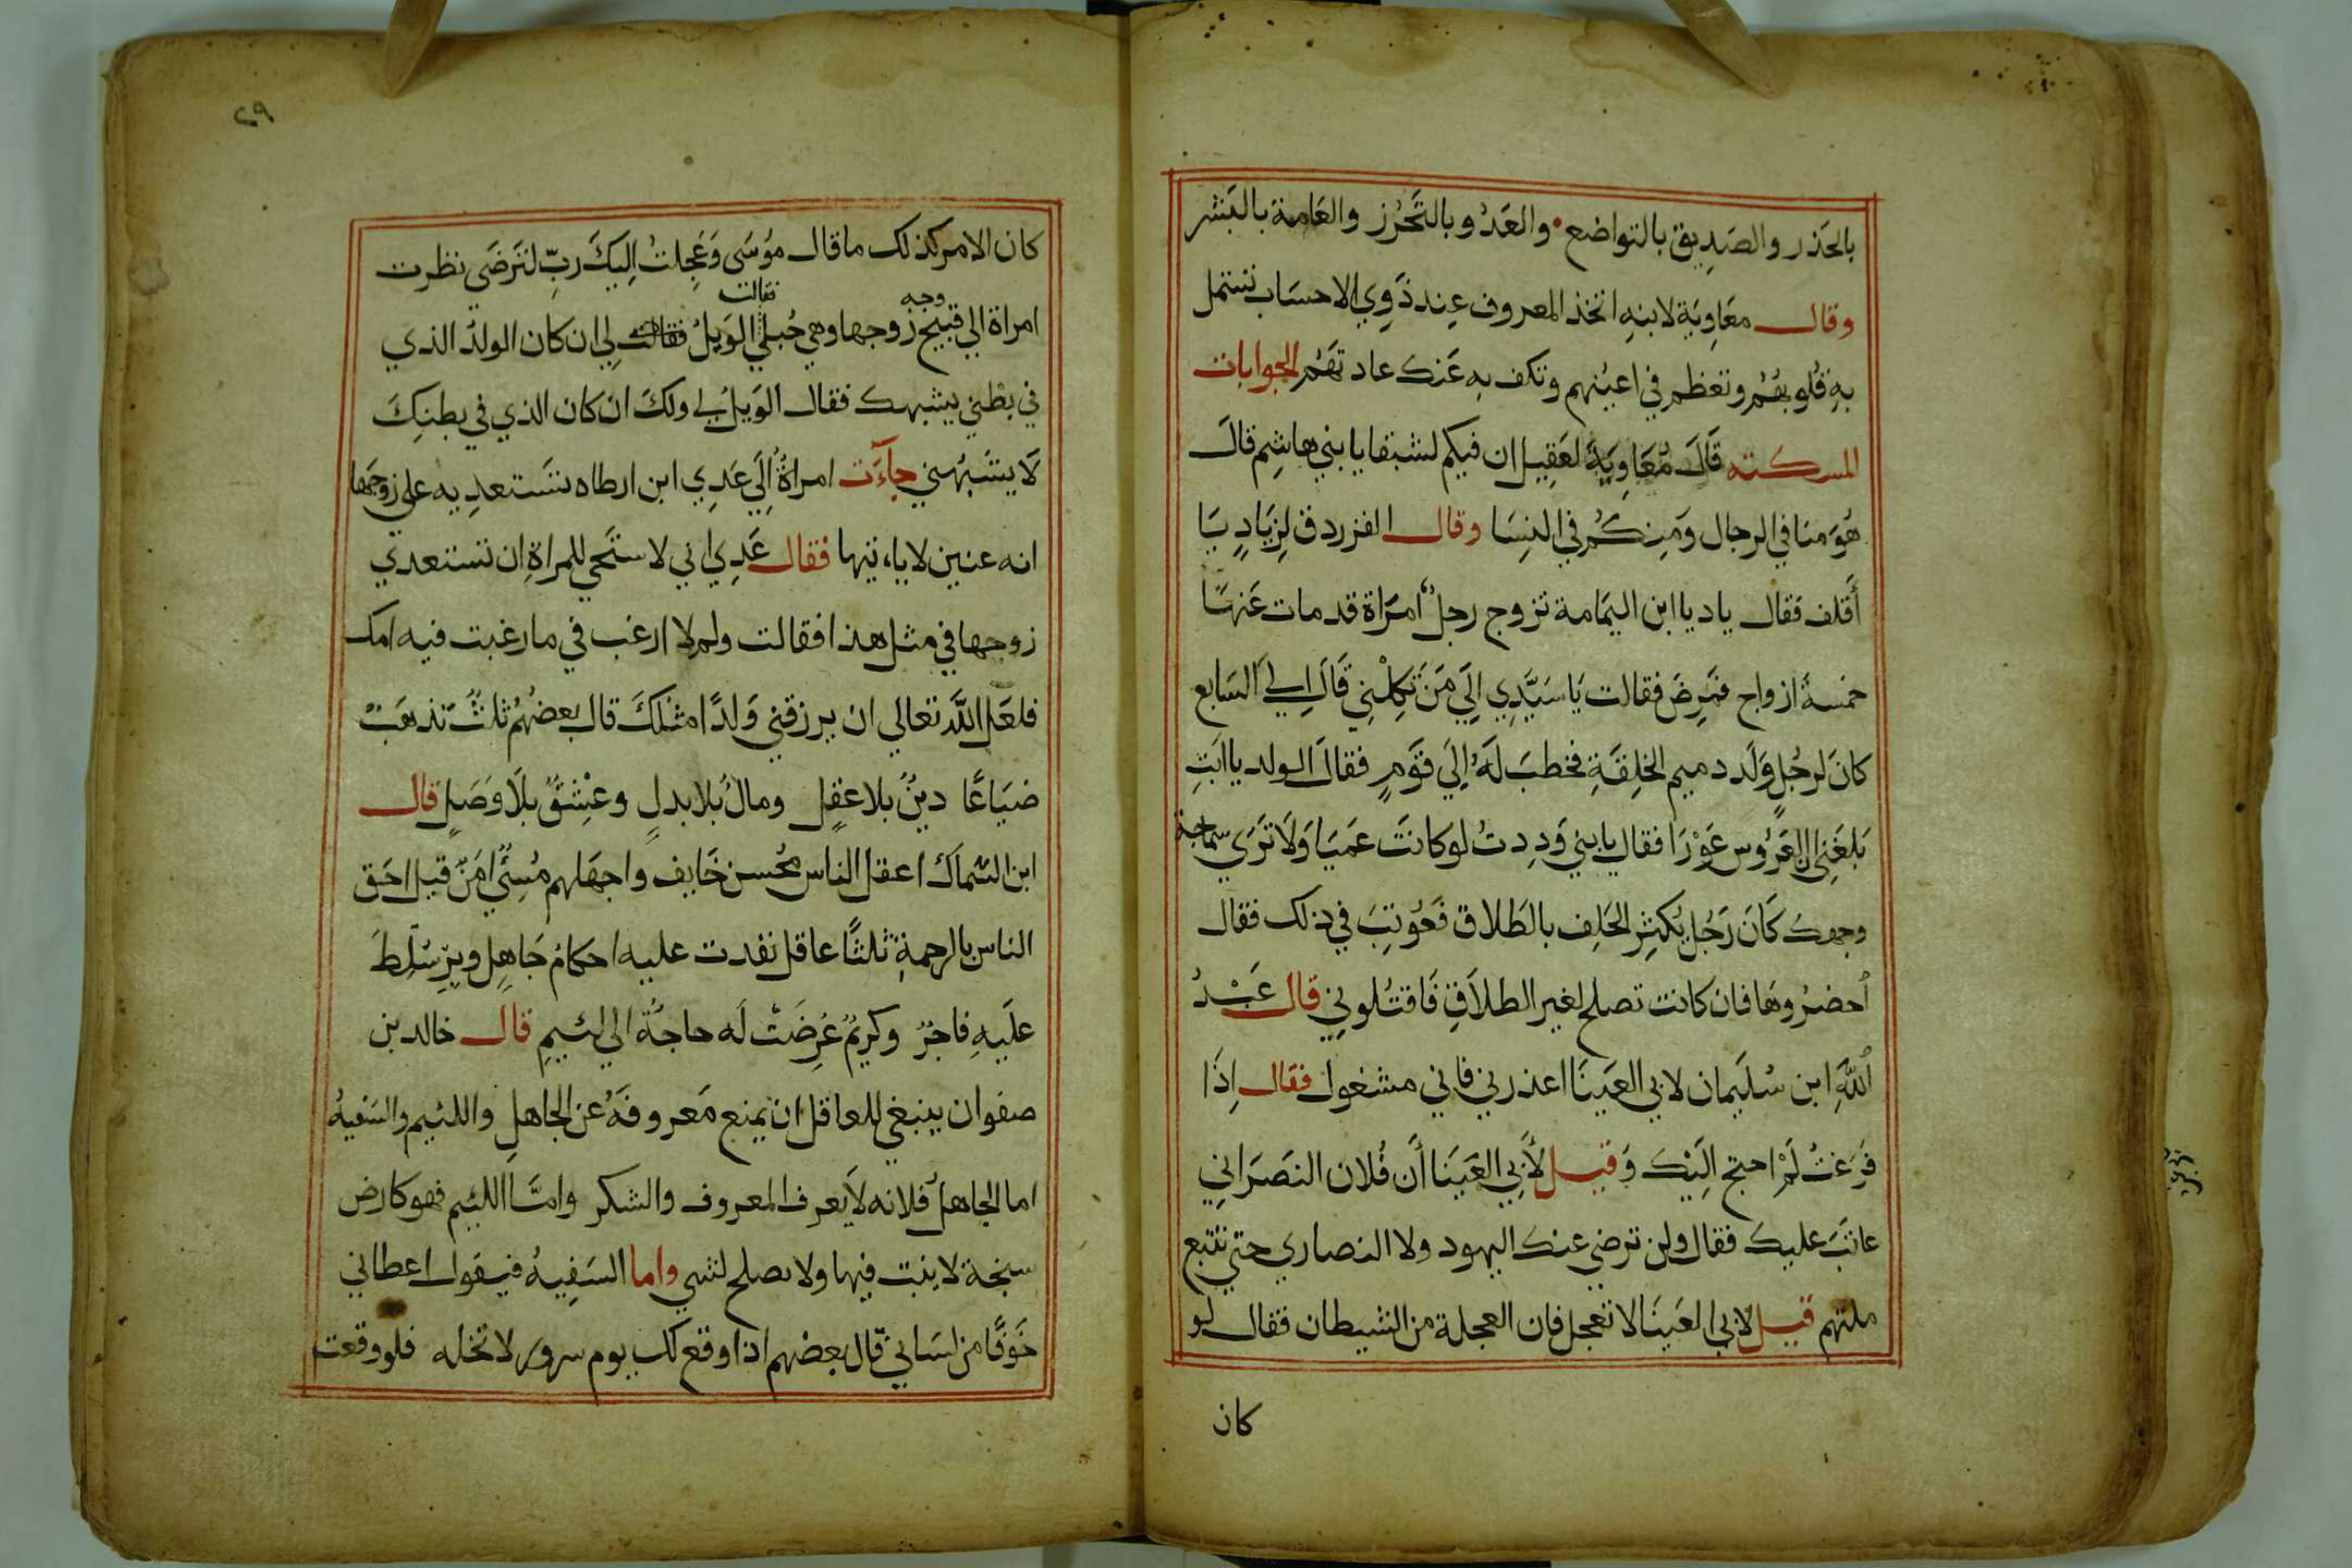 بالحَذر والصَدِيق بالتواضع • والعَدُو وبالتَّحَرُز والعَامة بالبَشر
وقال معَاوِيَة لابنهِ اتخذ المعروف عِند ذَوِي الاحسَاب تستمل
بهِ قُلوبهُمْ وتعظم في اعيُنهم وتكف بهِ عَنك عاد تهَمُ الجوابات
المسكته قَالَ مُعَاوِيَةُ لعَقِيل ان فيكم لشبقا يا بني هاشِم قالَ
هُوَ منا في الرجال وَمِنكُم في النِسَا وقال الفرزدق لِزيَادٍ يَا
أَقلف فقال ياديا ابن اليمَامة تزوج رجلٌ امرَاة قد مات عَنهَا
خمسةُ ازواج فمَرِضَ فقالت يَا سَيَّدِي اِلَي مَنَ تَكِلْنِي قَالَ اِلي السَابع
كانَ لرجُلٍ وَلَد دميم الخِلقَةِ فخطبَ لَهُ اِلَي قَومٍ فقالَ الولد يا ابَتِ
بَلغَنِي ان العَرُوس عَوْرَا فقال يا بني وَدِدتُ لو كانتَ عَميَا وَلَا تَرَي سماجة
وجهكَ كَانَ رَجُل يُكثِر الحَلِف بالطَلاق فَعُوتِبَ في ذلك فقال
اُحضرُوهَا فان كانت تصلح لغير الطلاَقِ فَاقتُلونِي قال عَبْدُ
اللّهِ ابن سُلَيمان لابي العَينَا اعذرني فاني مشغول فقال اِذَا
فرَغتُ لَمْ احتج اِلَيْك وَقيل لأَبي العَينَا أَن فُلان النصَرَاني
عاتبَ عليك فقال ولن ترضي عنك اليهود ولا النصاري حتي تتبع
ملتهم قيل لابي العَينَا لا تعجل فان العجلة من الشيطان فقال لو
كان
٢٩
كان الامر كذلك ما قال مُوسَى وَعَجِلتُ اِلَيكَ رَبِّ لتَرضَي نظرت
وجه فقالت
امراة الي قبيح زوجها وهي حُبلي الوَيلُ فقالت لِي ان كان الولدُ الذي
في بطْني يشبهك فقال الوَيلُ لي ولكَ ان كان الذي في بطنِكَ
لَا يشَبهُني جآءَت امراةُ اِلَي عَدِي ابن ارطاه تستَعدِيه علي زوجَها
انه عنين لا ياءتيها فقال عَدِي اني لاستَحي للمراةِ ان تستعدي
زوجها في مثل هذا فقالت ولم لا ارغب في ما رغبت فيه امك
فلعَل اللّه تعالي ان يرزقني وَلدًا مثلكَ قال بعضهُم ثلثُ تذهبَ
ضيَاعًا دينُ بلا عقلٍ ومالُ بُلا بدلٍ وعِشقُ بلَا وَصَلٍ قال
ابن السَماك اعقل الناس محُسن خَايف واجهَلهم مُسِئٍي امَن قيل احَق
الناس بالرحمةِ ثلثًا عاقل نفدت عليه احكامُ جَاهِل وبرّ سُلِّطَ
علَيهِ فاجرٌ وكريمٌ عُرِضَتْ لَه حاجةٌ الي لئيمٍ قال خالد بن
صفوان ينبغي للعاقل ان يمنع مَعروفَهُ عن الجاهلِ واللئيم والسَفيهُ
اما الجاهل فلانه لَا يعرف المعروف والشكر وامَّا اللئيم فهو كارض
سبخة لا ينبت فيها ولا يصلح لشي واما السَفِيهُ فيقول اعطاني
خَوفًا من لسَاني قال بعضهم اذا وقع لك يوم سرور لا تخله فلو وقعت